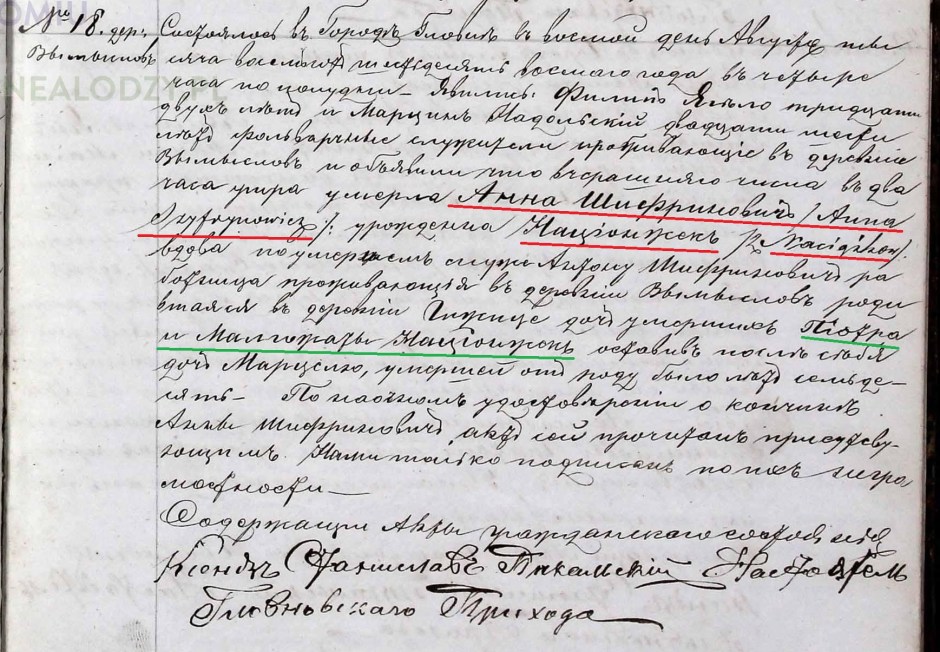 № 18. дер. Состоялось въ Городѣ Гловнѣ въ восмой день Августа тыс
Вымысловъ сяча восемьсотъ шестьдесятъ восмаго года въ четыре
NEALODZY.PL
часа по полудни – Явились: Филипъ тридцати
двухъ лѣтъ и Марцинъ Надольскій двадцати шести
лѣтъ фольварчные служители проживающіе въ деревнѣ
Вымысловъ и объявили что вчерашняго числа въ два
часа утра умерла Анна Шифриновичъ /: Anna
Szyfrynowicz :/ урожденна Нацōнжекъ /: Naciążkow :/
вдова по умершемъ Антону Шифриновичъ ра
ботница проживающія въ деревни Вымысловъ роди
вшаяся въ деревни Гижице дочь умершихъ Піотра
и Малгожаты Нацёнжекъ оставивъ послѣ себя
дочь Марцелю, умершей отъ роду было лѣтъ семьде–
сятъ – По наочномъ удостовѣреніи о кончинѣ
Анны Шифриновичъ актъ сей прочитанъ присутству–
ющимъ. Нами только подписанъ по ихъ негра
мотности –
Содержащій Акты гражданскаго состоянія
Ксендзъ Станиславъ Настоятель
Гловновскаго Прихода